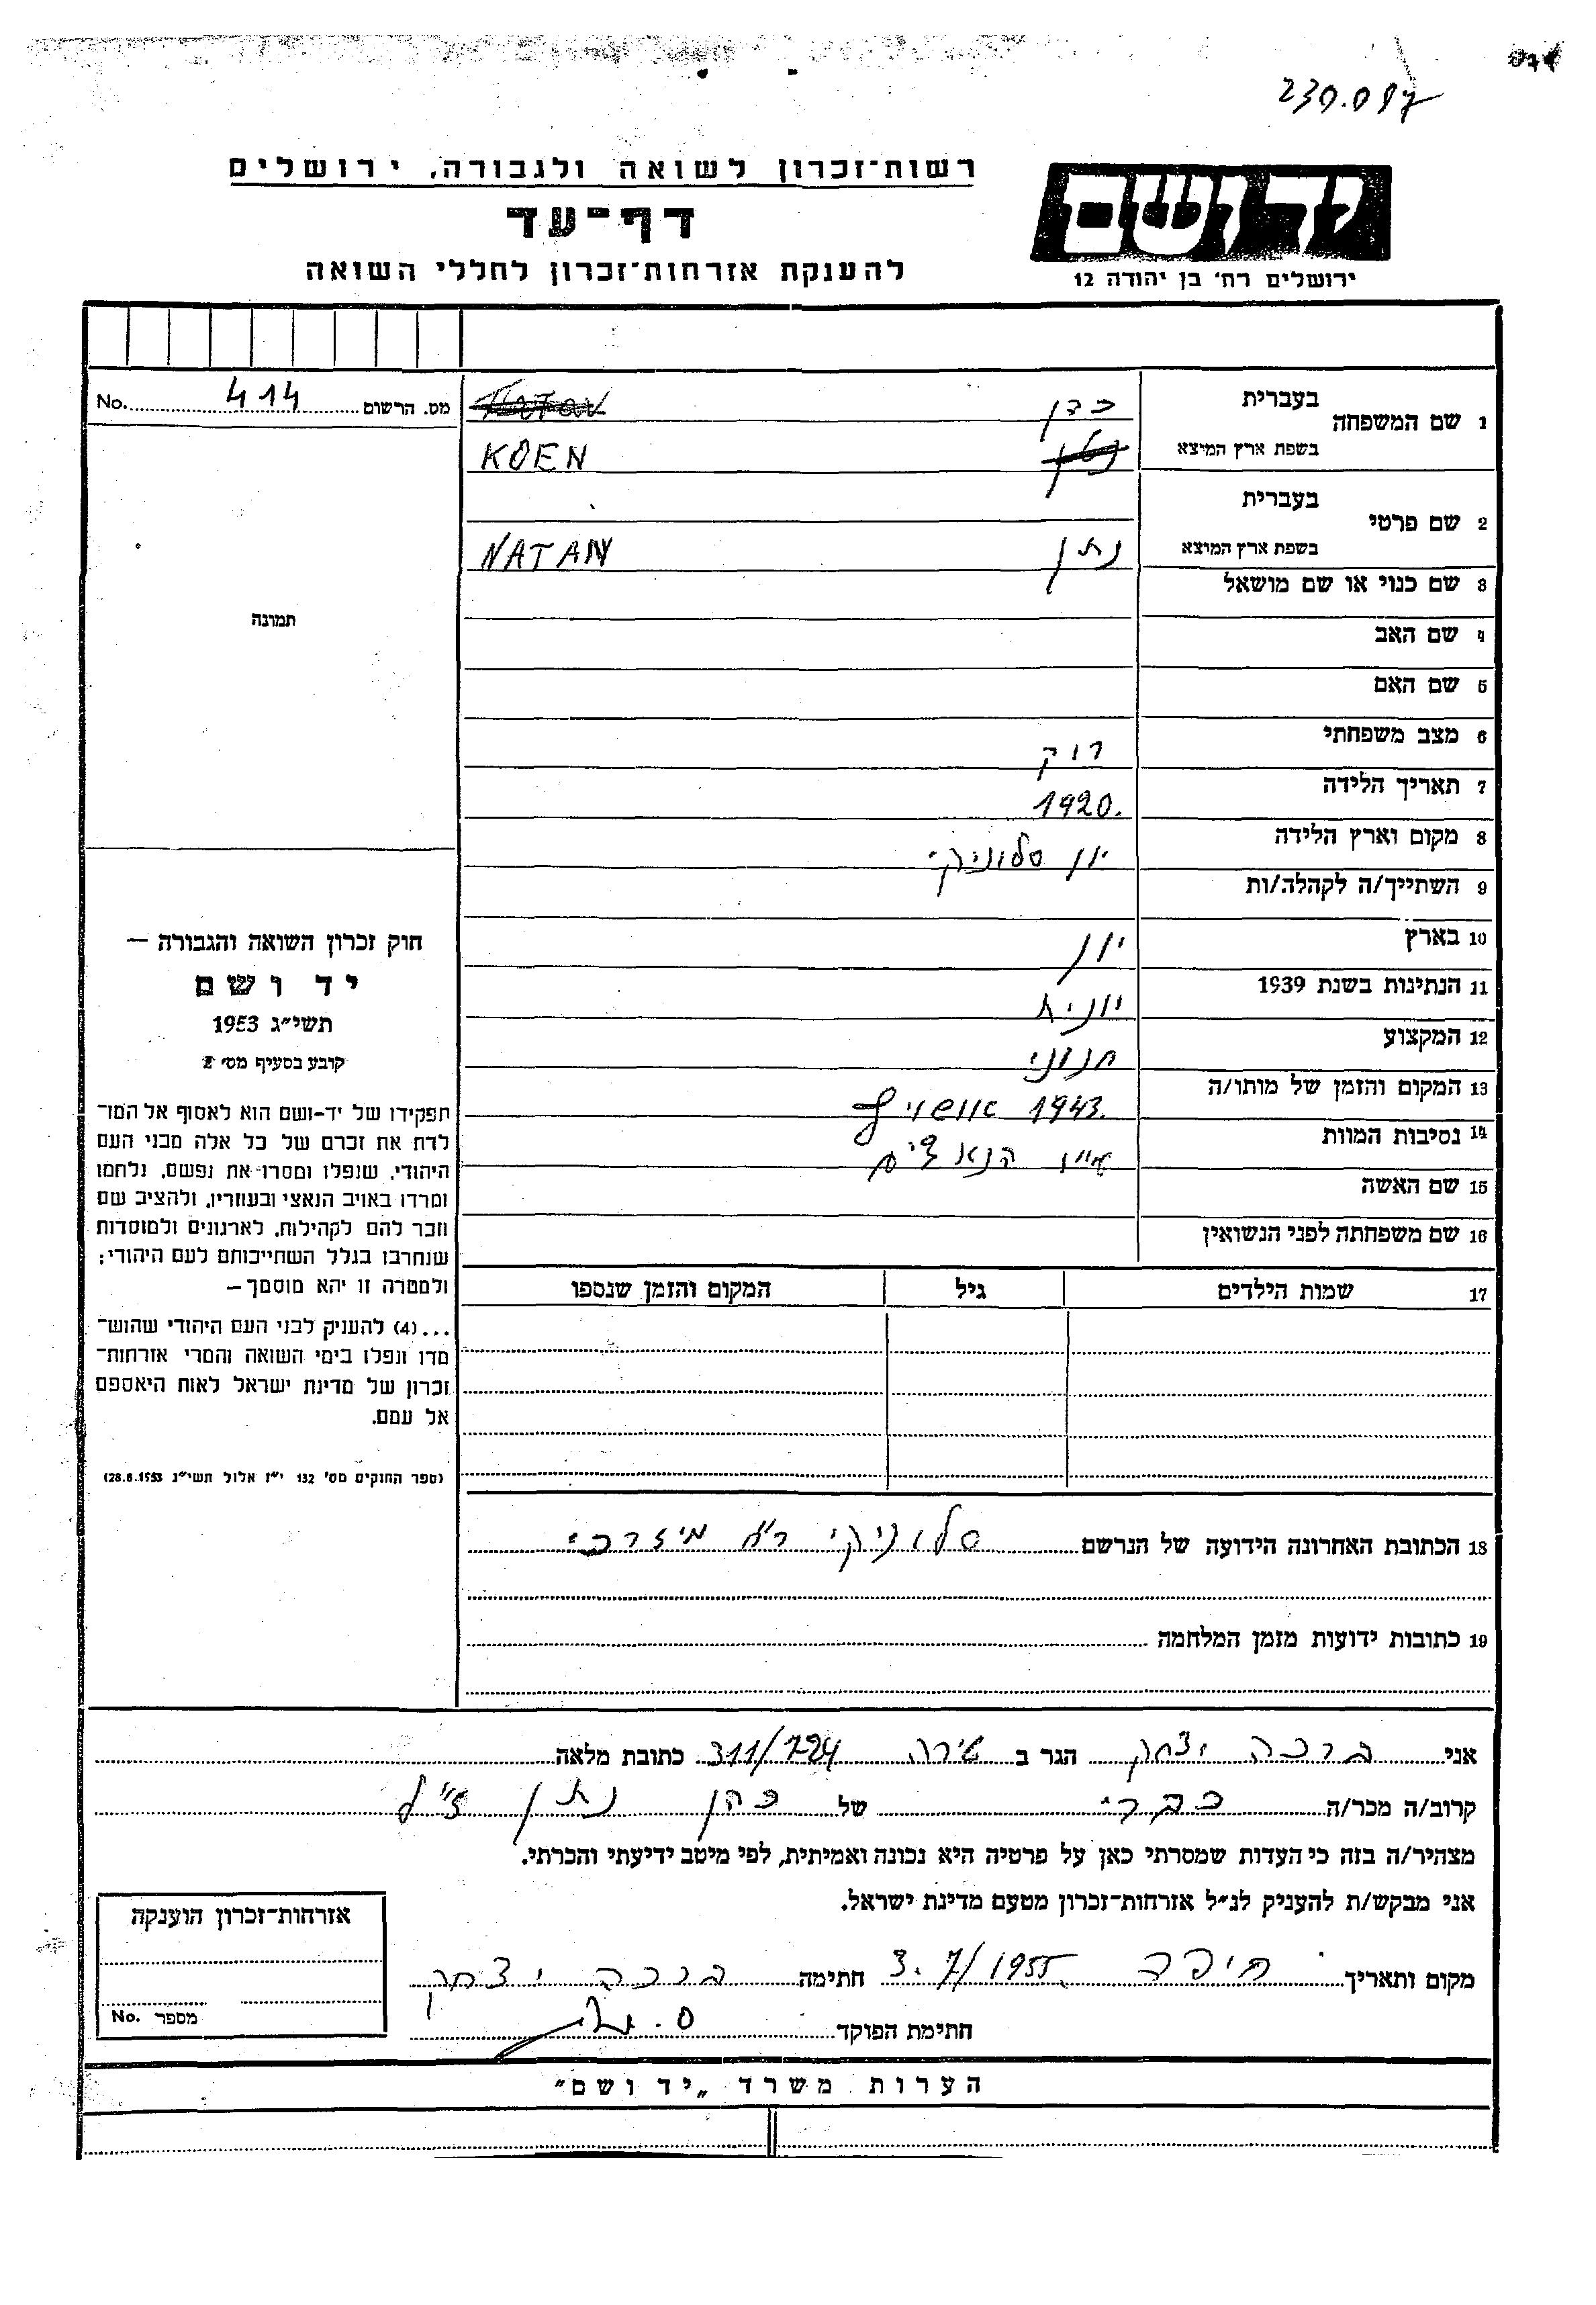 230.087
רשות־זכרון לשואה ולגבורה, ירושלים
יד ושם
דף־עד
להענקת אזרחות־זכרון לחללי השואה
ירושלים רח׳ בן יהודה 12
מס. הרשום 414 No.
1 שם המשפחה
בעברית כהן
בשפת ארץ המוצא KOEN
2 שם פרטי
בעברית
בשפת ארץ המוצא נתן NATAN
3 שם כנוי או שם מושאל
4 שם האב
5 שם האם
6 מצב משפחתי רוק
7 תאריך הלידה 1920.
8 מקום וארץ הלידה יון סלוניקי
9 השתייך/ה לקהלה/ות
10 בארץ יון
11 הנתינות בשנת 1939 יונית
12 המקצוע חנוני
13 המקום והזמן של מותו/ה 1943. אושויץ
14 נסיבות המוות הנאצים
15 שם האשה
16 שם משפחתה לפני הנשואין
17 שמות הילדים גיל המקום והזמן שנספו
תמונה
חוק זכרון השואה והגבורה –
יד ושם
תשי״ג 1953
קובע בסעיף מס׳ 2
תפקידו של יד-ושם הוא לאסוף אל המו־
לדת את זכרם של כל אלה מבני העם
היהודי, שנפלו ומסרו את נפשם, נלחמו
ומרדו באויב הנאצי ובעוזריו, ולהציב שם
וזכר להם לקהילות, לארגונים ולמוסדות
שנחרבו בגלל השתייכותם לעם היהודי;
ולמטרה זו יהא מוסמך –
...(4) להעניק לבני העם היהודי שהוש־
מדו ונפלו בימי השואה והמרי אזרחות־
זכרון של מדינת ישראל לאות היאספם
אל עמם.
(ספר החוקים מס׳ 132 י״ז אלול תשי״ג 28.8.1953)
18 הכתובת האחרונה הידועה של הנרשם סלוניקי רח מיזרחי
19 כתובות ידועות מזמן המלחמה
אני ברכה יצחק הגר ב טירה 311/724 כתובת מלאה
קרוב/ה מכר/ה של כהן נתן ז״ל
מצהיר/ה בזה כי העדות שמסרתי כאן על פרטיה היא נכונה ואמיתית, לפי מיטב ידיעתי והכרתי.
אני מבקש/ת להעניק לנ״ל אזרחות־זכרון מטעם מדינת ישראל.
מקום ותאריך חיפה 3.7/1955 חתימה ברכה יצחק
חתימת הפוקד
אזרחות־זכרון הוענקה
מספר No.
הערות משרד „יד ושם״